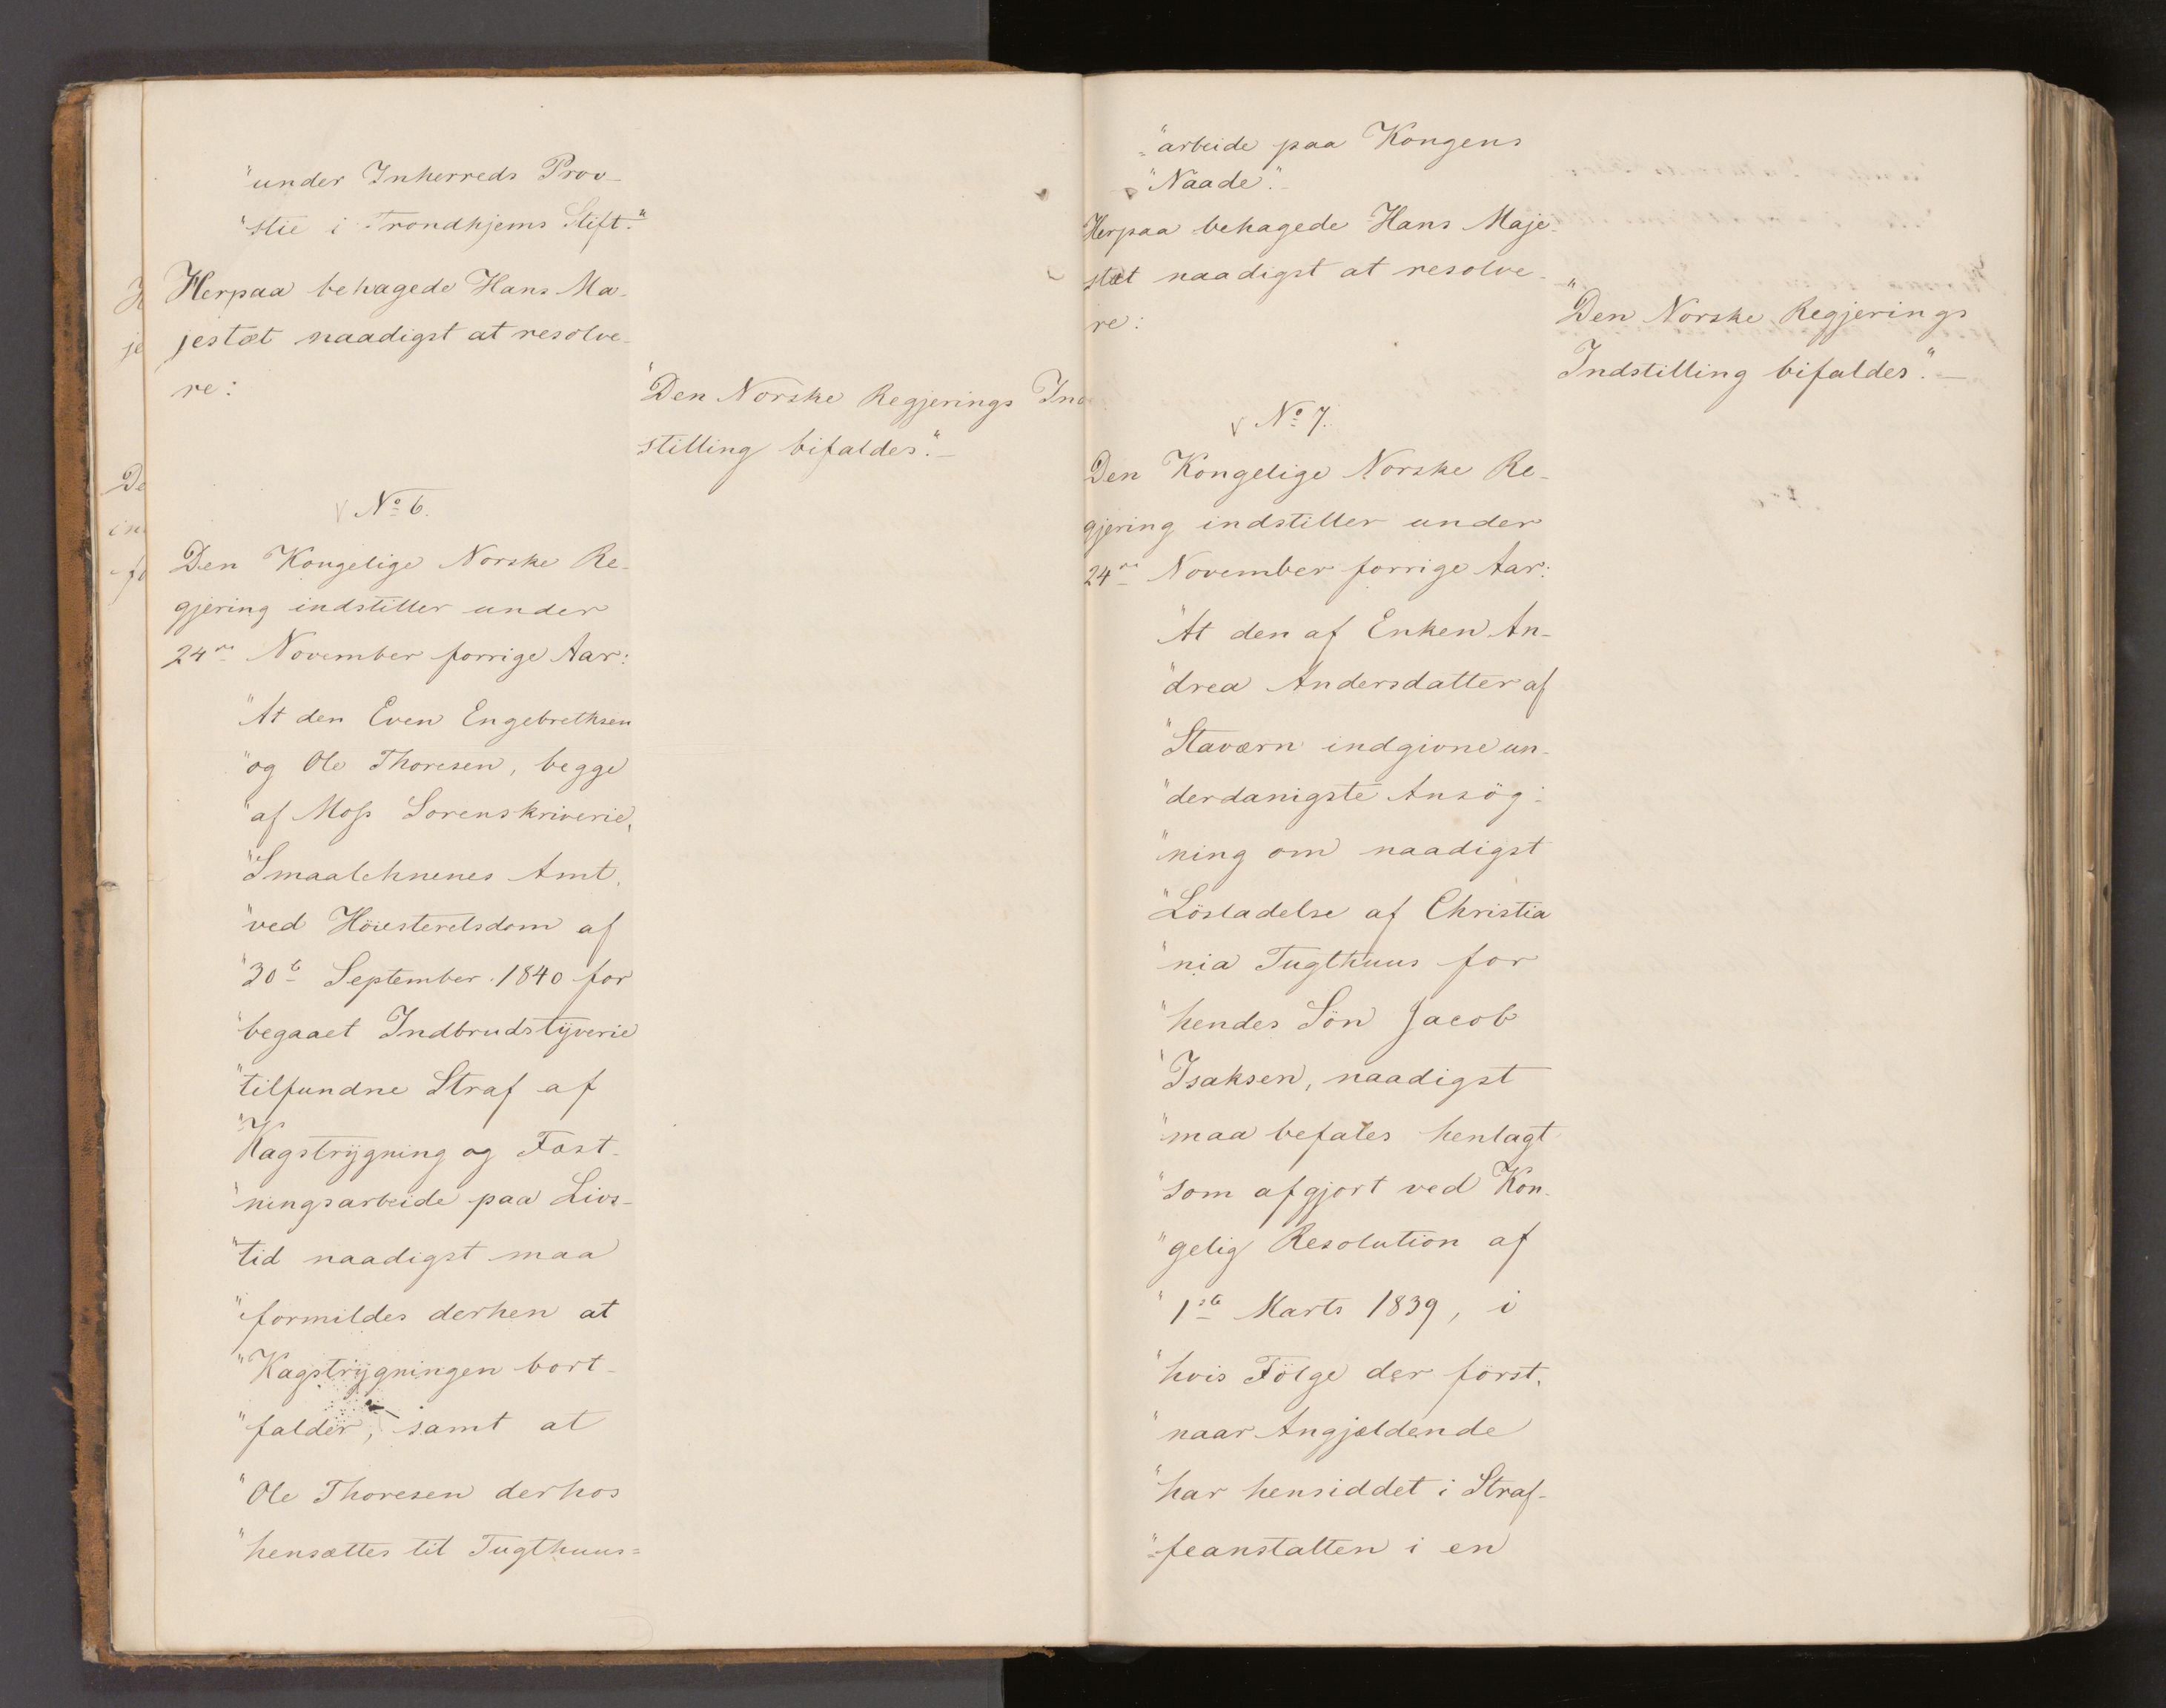 "under Inherreds Prov-
"stie i Trondhjems Stift."
Herpaa behagede Hans Ma-
jestæt naadigst at resolve-
re:
"Den Norske Regjerings Ind
stilling bifaldes."-
No 6.
Den Kongelige Norske Re-
gjering indstiller under
24de November forrige Aar:
"At den Even Engebrethsen
"og Ole Thoresen, begge
"af Moss Sorenskriverie,
"Smaalehnenes Amt,
"ved Höiesteretsdom af
"30te September 1840 for
"begaaet Indbrudstÿverie
"tilfundne Straf af
"Kagstrÿgning og Fæst-
"ningsarbeide paa Livs-
"tid naadigst maa
"formildes derhen at
"Kagstrÿgningen bort-
"falder, samt at
"Ole Thoresen derhos
"hensættes til Tugthuus=
"arbeide paa Kongens
"Naade."-
Herpaa behagede Hans Maje-
stæt naadigst at resolve-
re:
"Den Norske Regjerings
Indstilling bifaldes."-
No 7.
Den Kongelige Norske Re-
gjering indstiller under
24de November forrige Aar:
"At den af Enken An-
"drea Andersdatter af
"Staværn indgivne un-
"derdanigste Ansög-
"ning om naadigst
"Lösladelse af Christia
"nia Tugthuus for
"hendes Sön Jacob
"Isaksen, naadigst
"maa befales henlagt
"som afgjort ved Kon-
"gelig Resolution af
"1ste Marts 1839, i
"hvis Fölge der först,
"naar Angjældende
"har hensiddet i Straf-
"feanstalten i en